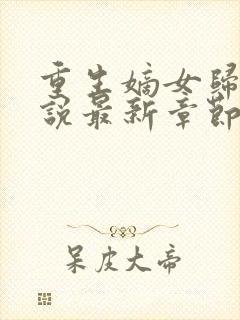 重生嫡女歸
說最新章節
呆皮大帝